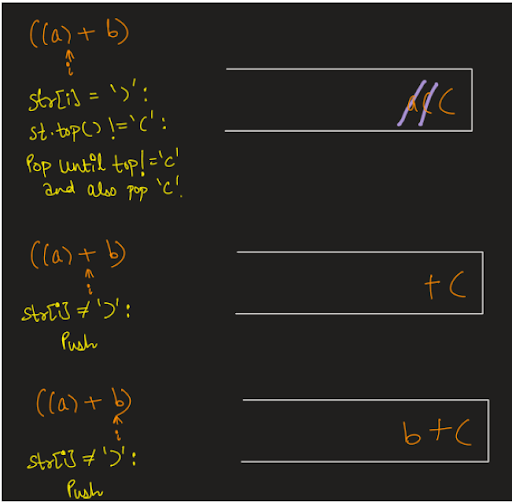 ((a) + b)
i
str[i] = ')':
st.top() != '(':
Pop until top != '('
and also pop '('.
a ( (
((a) + b)
i
str[i] ≠ ')':
Push
+ (
((a) + b)
i
str[i] ≠ ')':
Push
b + (